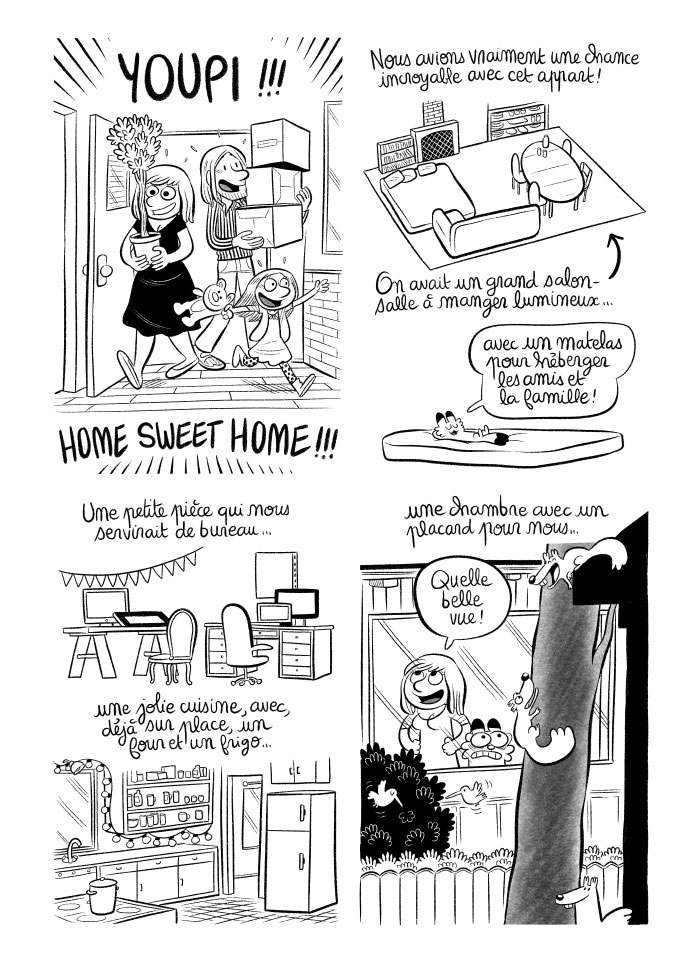 YOUPI !!!
HOME SWEET HOME !!!
Nous avions vraiment une chance
incroyable avec cet appart !
On avait un grand salon-
salle à manger lumineux...
avec un matelas
pour héberger
les amis et
la famille !
Une petite pièce qui nous
servirait de bureau...
une jolie cuisine, avec,
déjà sur place, un
four et un frigo...
une chambre avec un
placard pour nous...
Quelle
belle
vue !